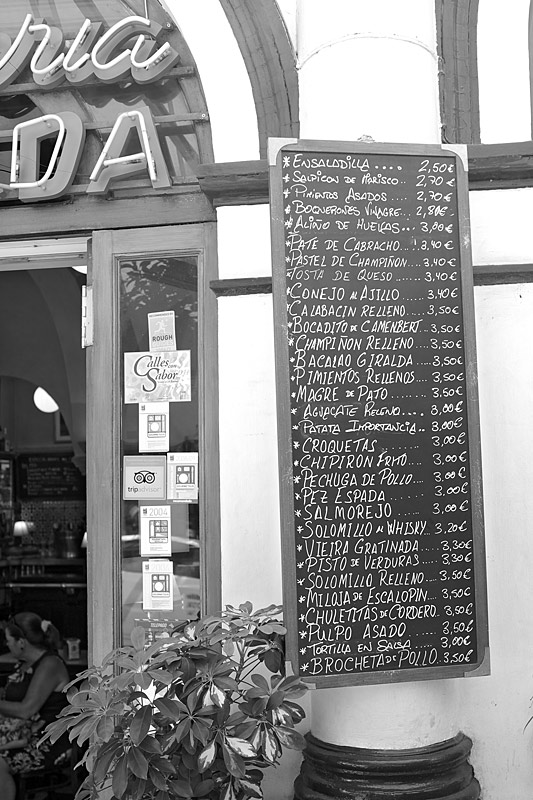 ria
DA
ROUGH
Calles con
Sabor
tripadvisor
2004
* ENSALADILLA .... 2,50€
* SALPICON DE MARISCO.. 2,70€
* PIMIENTOS ASADOS .... 2,70€
* BOQUERONES VINAGRE.. 2,80€
* ALIÑO DE HUEVAS.... 3,00€
* PATÉ DE CABRACHO.. 3,40€
* PASTEL DE CHAMPIÑON.. 3,40€
* TOSTA DE QUESO .. 3,40€
* CONEJO AL AJILLO ..... 3,40€
* CALABACIN RELLENO.... 3,50€
* BOCADITO DE CAMENBERT.. 3,50€
* CHAMPIÑON RELLENO.... 3,50€
* BACALAO GIRALDA..... 3,50€
* PIMIENTOS RELLENOS.... 3,50€
* MAGRE DE PATO ..... 3,50€
* AGUACATE RELLENO.... 3,00€
* PATATA IMPORTANCIA.. 3,00€
* CROQUETAS ..... 3,00€
* CHIPIRON FRITO .... 3,00€
* PECHUGA DE POLLO... 3,00€
* PEZ ESPADA ..... 3,00€
* SALMOREJO ..... 3,00€
* SOLOMILLO AL WHISKY.. 3,20€
* VIEIRA GRATINADA..... 3,30€
* PISTO DE VERDURAS... 3,30€
* SOLOMILLO RELLENO... 3,50€
* MILOJA DE ESCALOPIN.. 3,50€
* CHULETITAS DE CORDERO. 3,50€
* PULPO ASADO ...... 3,50€
* TORTILLA EN SALSA ... 3,00€
* BROCHETA DE POLLO. 3,50€